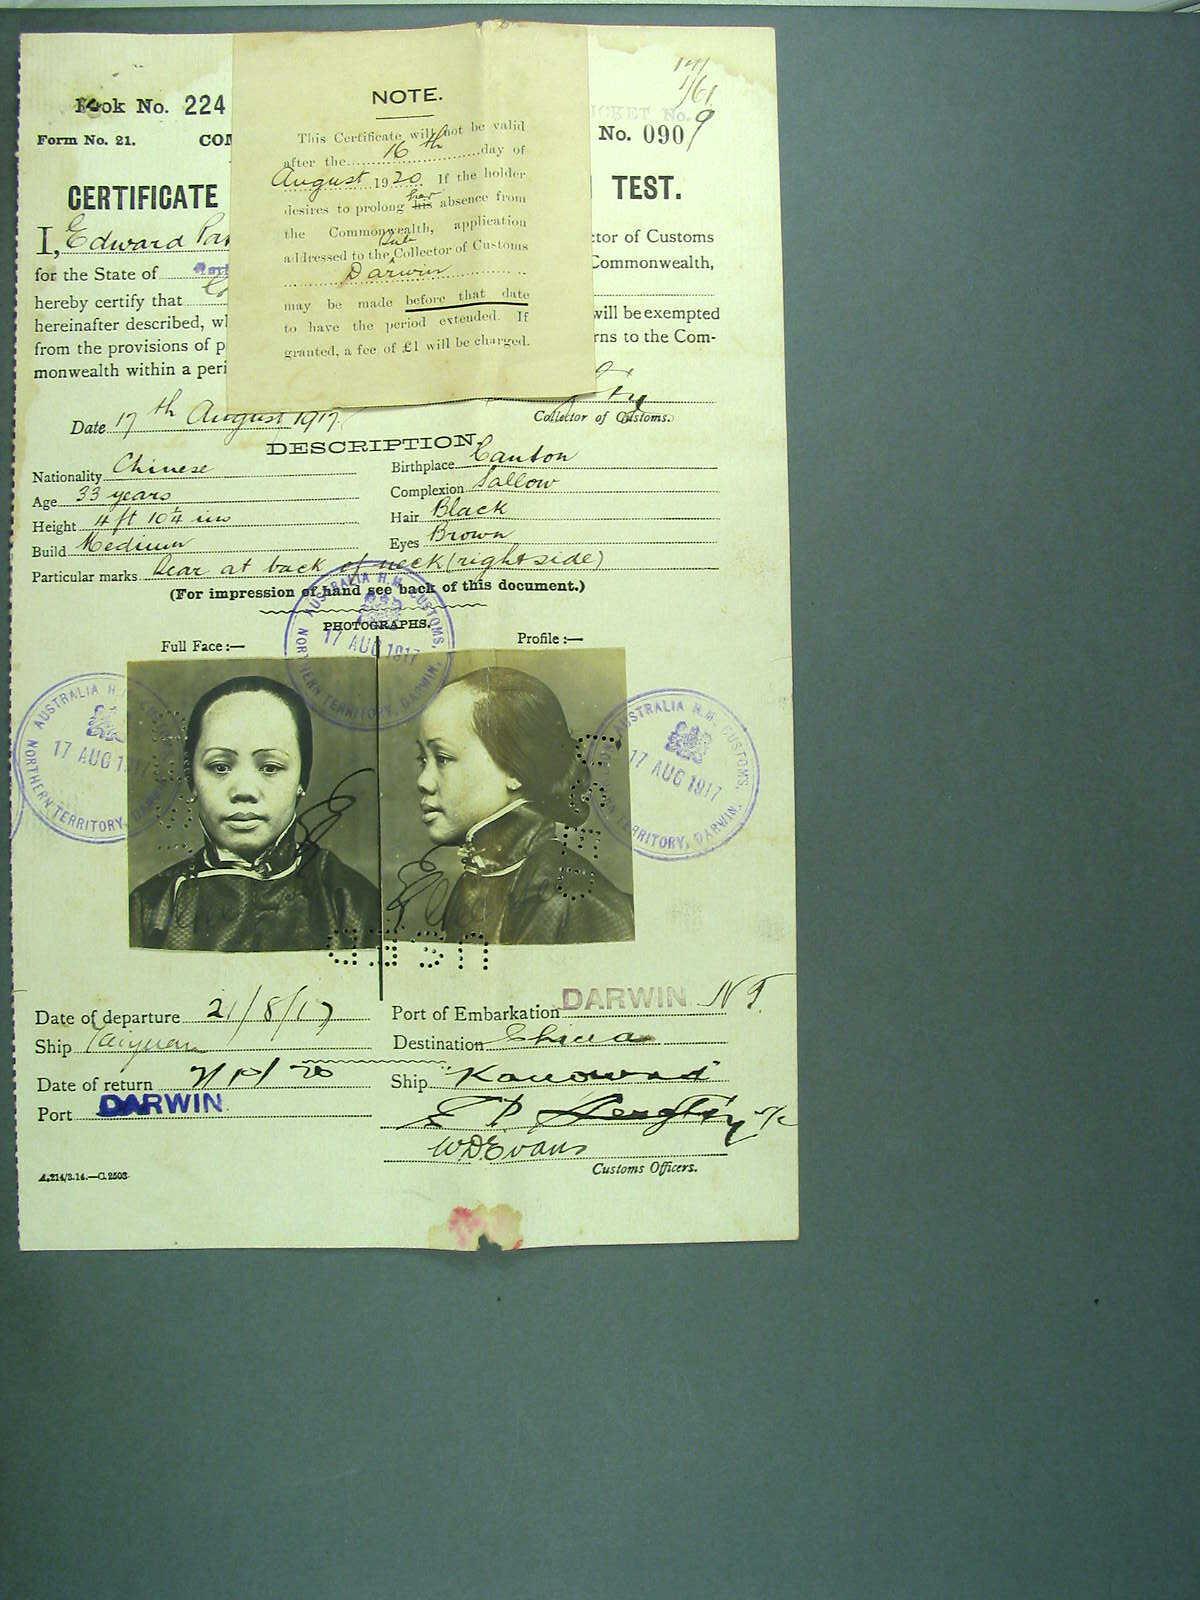 Book No. 224
Form No. 21.
CERTIFICATE
I, Edward
for the State of
hereby certify that
hereinafter described, wh
from the provisions of p
monwealth within a peri
NOTE.
This Certificate will not be valid
after the 16th day of
August 1920. If the holder
desires to prolong his her absence from
the Commonwealth, application
addressed to the Sub Collector of Customs
Darwin
may be made before that date
to have the period extended. If
granted, a fee of £1 will be charged.
No. 090/9
TEST.
ctor of Customs
Commonwealth,
will be exempted
rns to the Com-
Date 17th August 1917.
Collector of Customs.
DESCRIPTION.
Nationality Chinese
Birthplace Canton
Age 33 years
Complexion Sallow
Height 4 ft 10¼ ins
Hair Black
Build Medium
Eyes Brown
Particular marks Scar at back of neck (right side)
(For impression of hand see back of this document.)
PHOTOGRAPHS.
Full Face:—
Profile:—
AUSTRALIA H.M. CUSTOMS,
17 AUG 1917
NORTHERN TERRITORY, DARWIN.
AUSTRALIA H.M. CUSTOMS,
17 AUG 1917
NORTHERN TERRITORY, DARWIN.
AUSTRALIA H.M. CUSTOMS,
17 AUG 1917
NORTHERN TERRITORY, DARWIN.
USED
USED
Date of departure 21/8/17
Port of Embarkation DARWIN N.T.
Ship Taiyuan
Destination China
Date of return
Ship "Kanowna"
Port DARWIN.
W.D. Evans
Customs Officers.
A.214/3.14.—C.2503